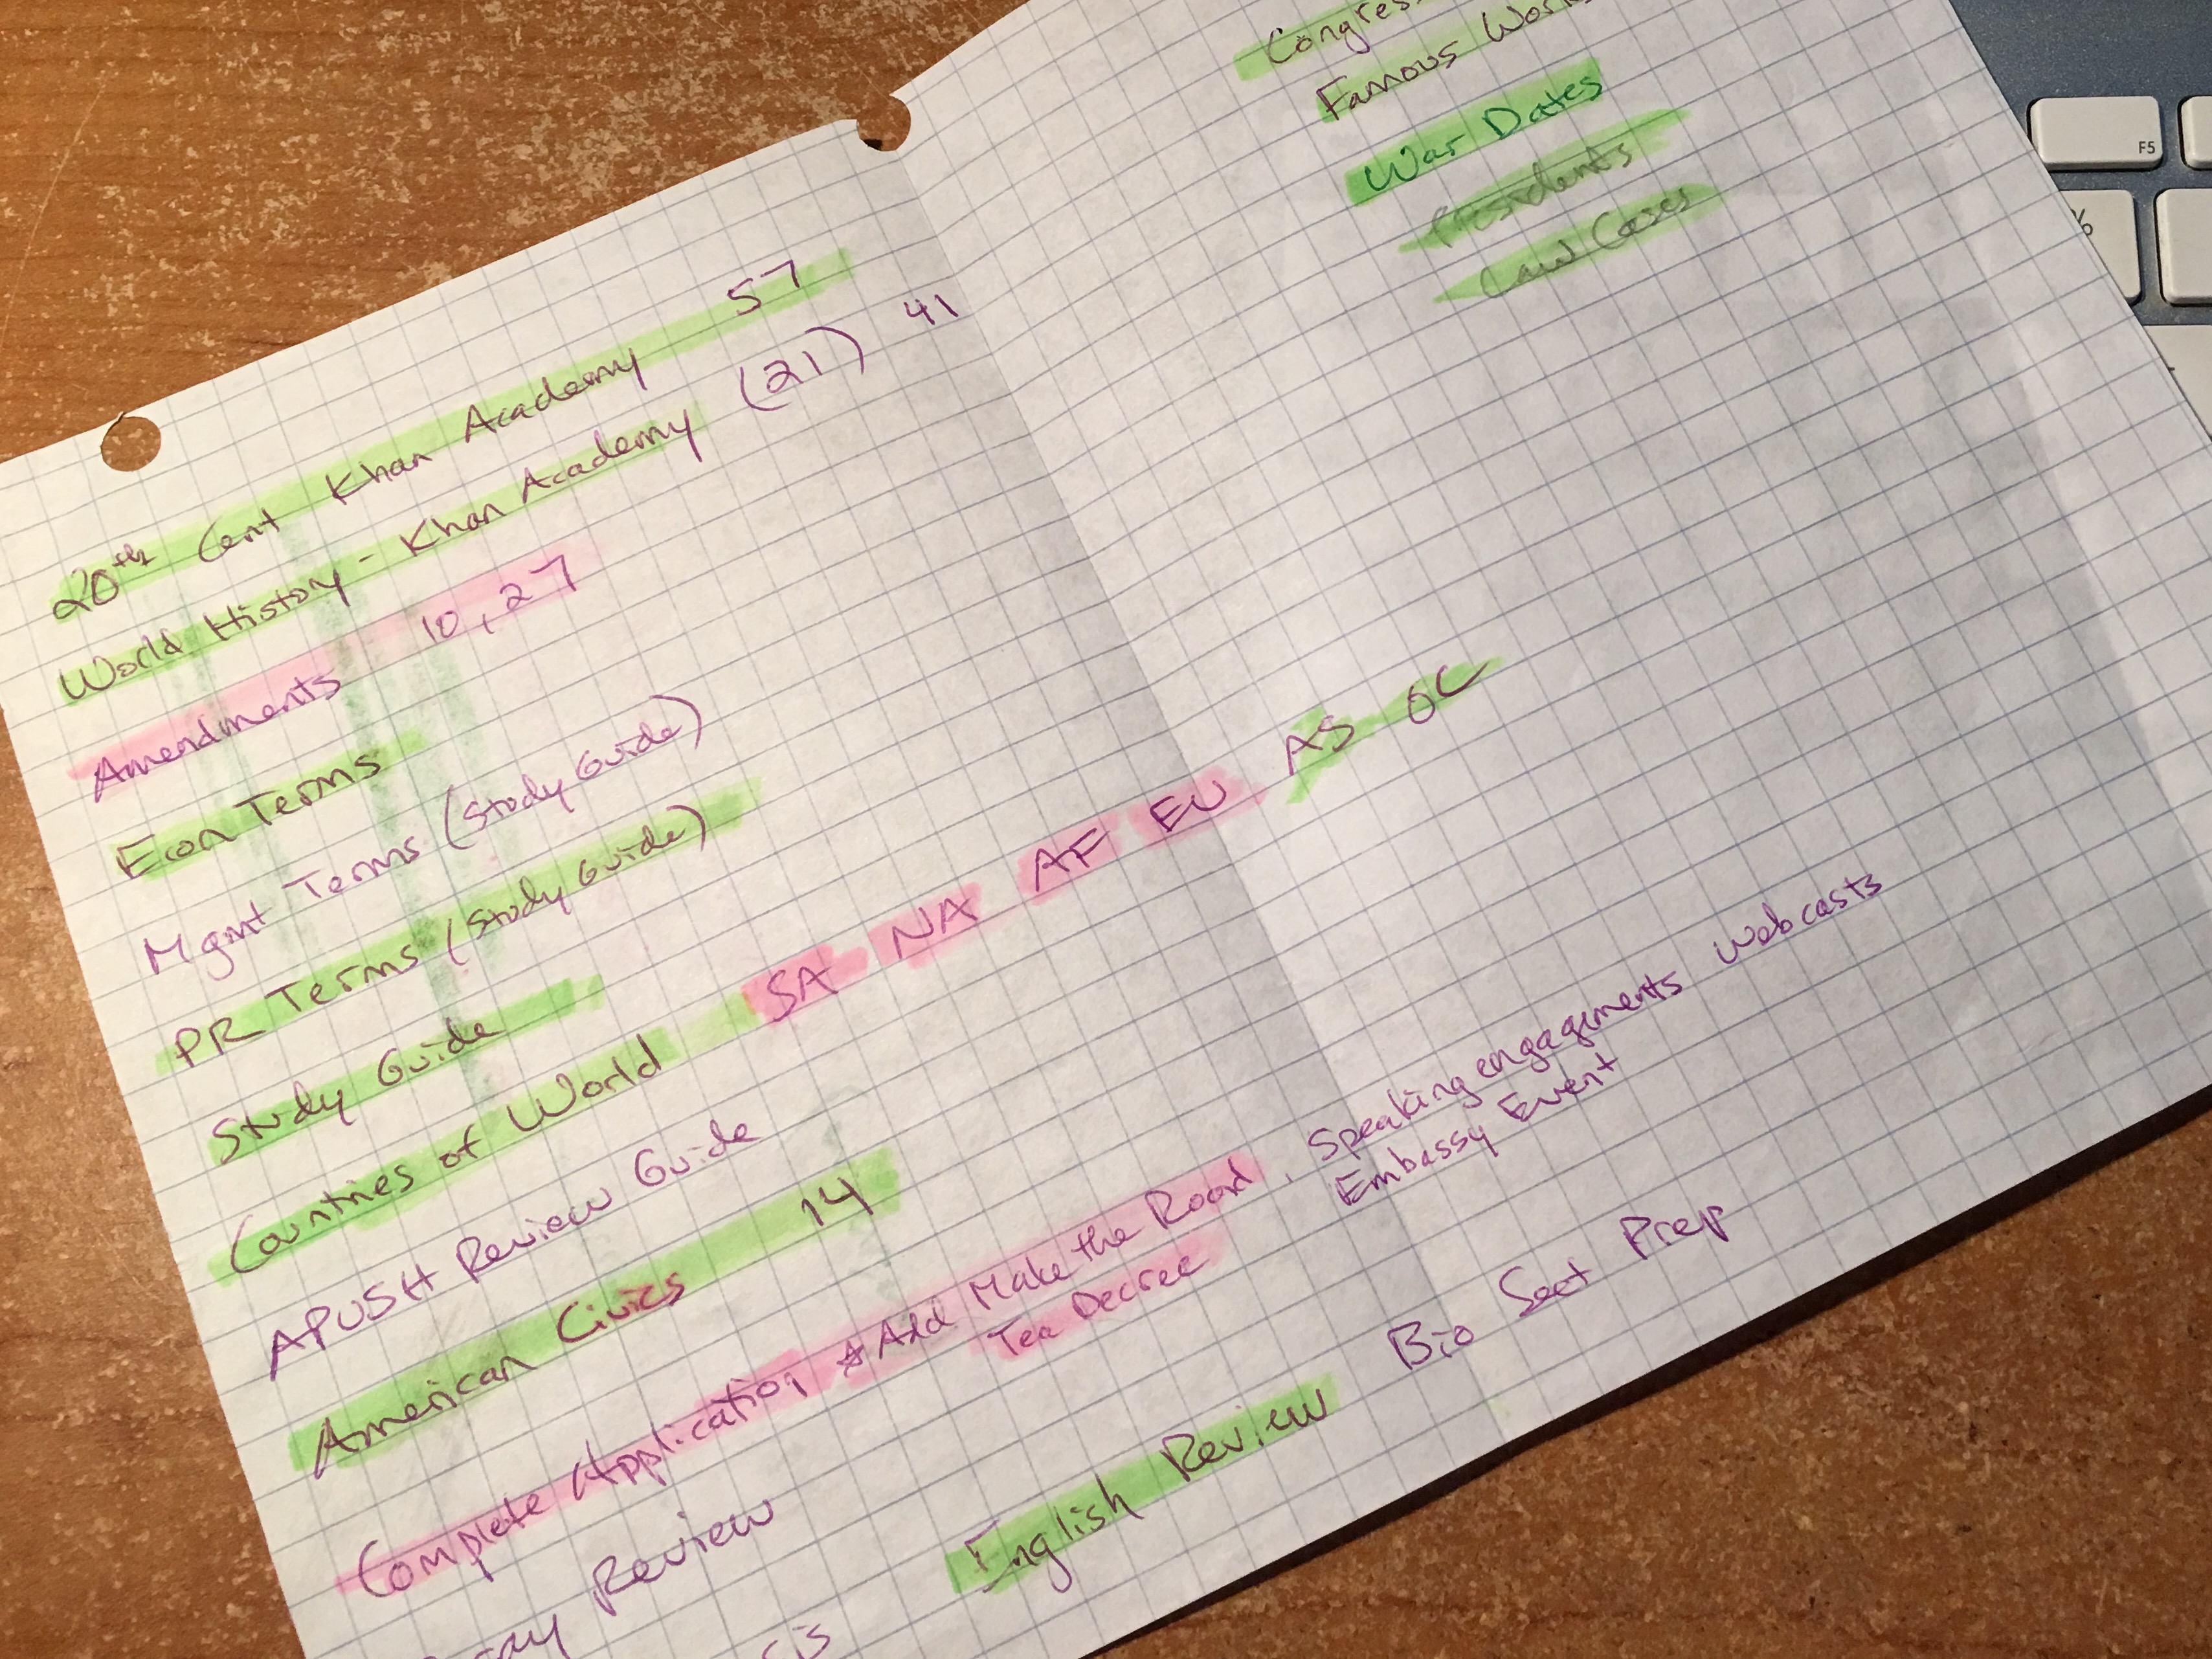 Famous
War Dates
Presidents
Law Cases
20th Cent Khan Academy 57
World History - Khan Academy (21) 41
Amendments 10, 27
Econ Terms
Mgmt Terms (Study Guide)
PR Terms (Study Guide)
Study Guide
Countries of World SA NA AF EU AS OC
APUSH Review Guide
American Civics 14
Complete Application *Add Make the Road, Speaking engagements webcasts
Tea Decree Embassy Event
Review English Review Bio Sect Prep
F5
%